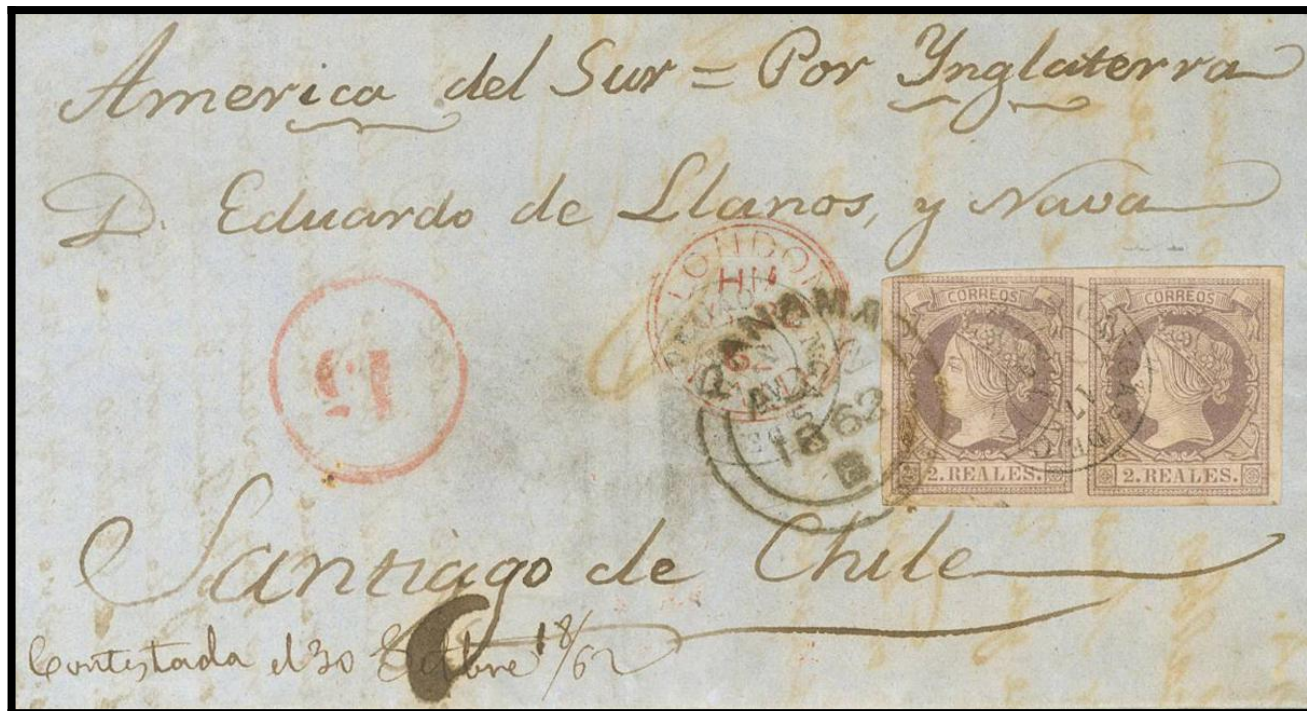 America del Sur = Por Ynglaterra
D. Eduardo de Llanos, y Nava
LONDON
PANAMA
AU
1862
B
15
CORREOS
2. REALES.
CORREOS
2. REALES.
Santiago de Chile
Contestada el 30 18/62